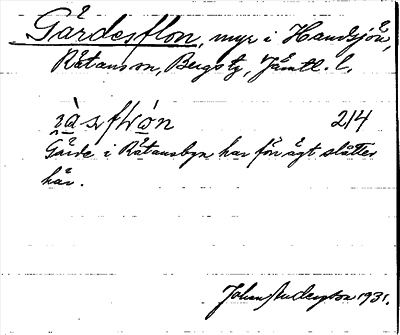 Gårdesflon, myr i Handsjön,
Råtans sn, Bergs tg, Jämtl. l.
214
Gårde i Råtansbyn har förr ägt slåtter
här.
Johan Anderson 1931.